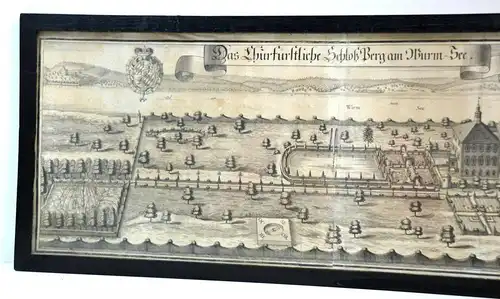 Das Chürfürstliche Schloß Berg am Würm-See.
Würm See